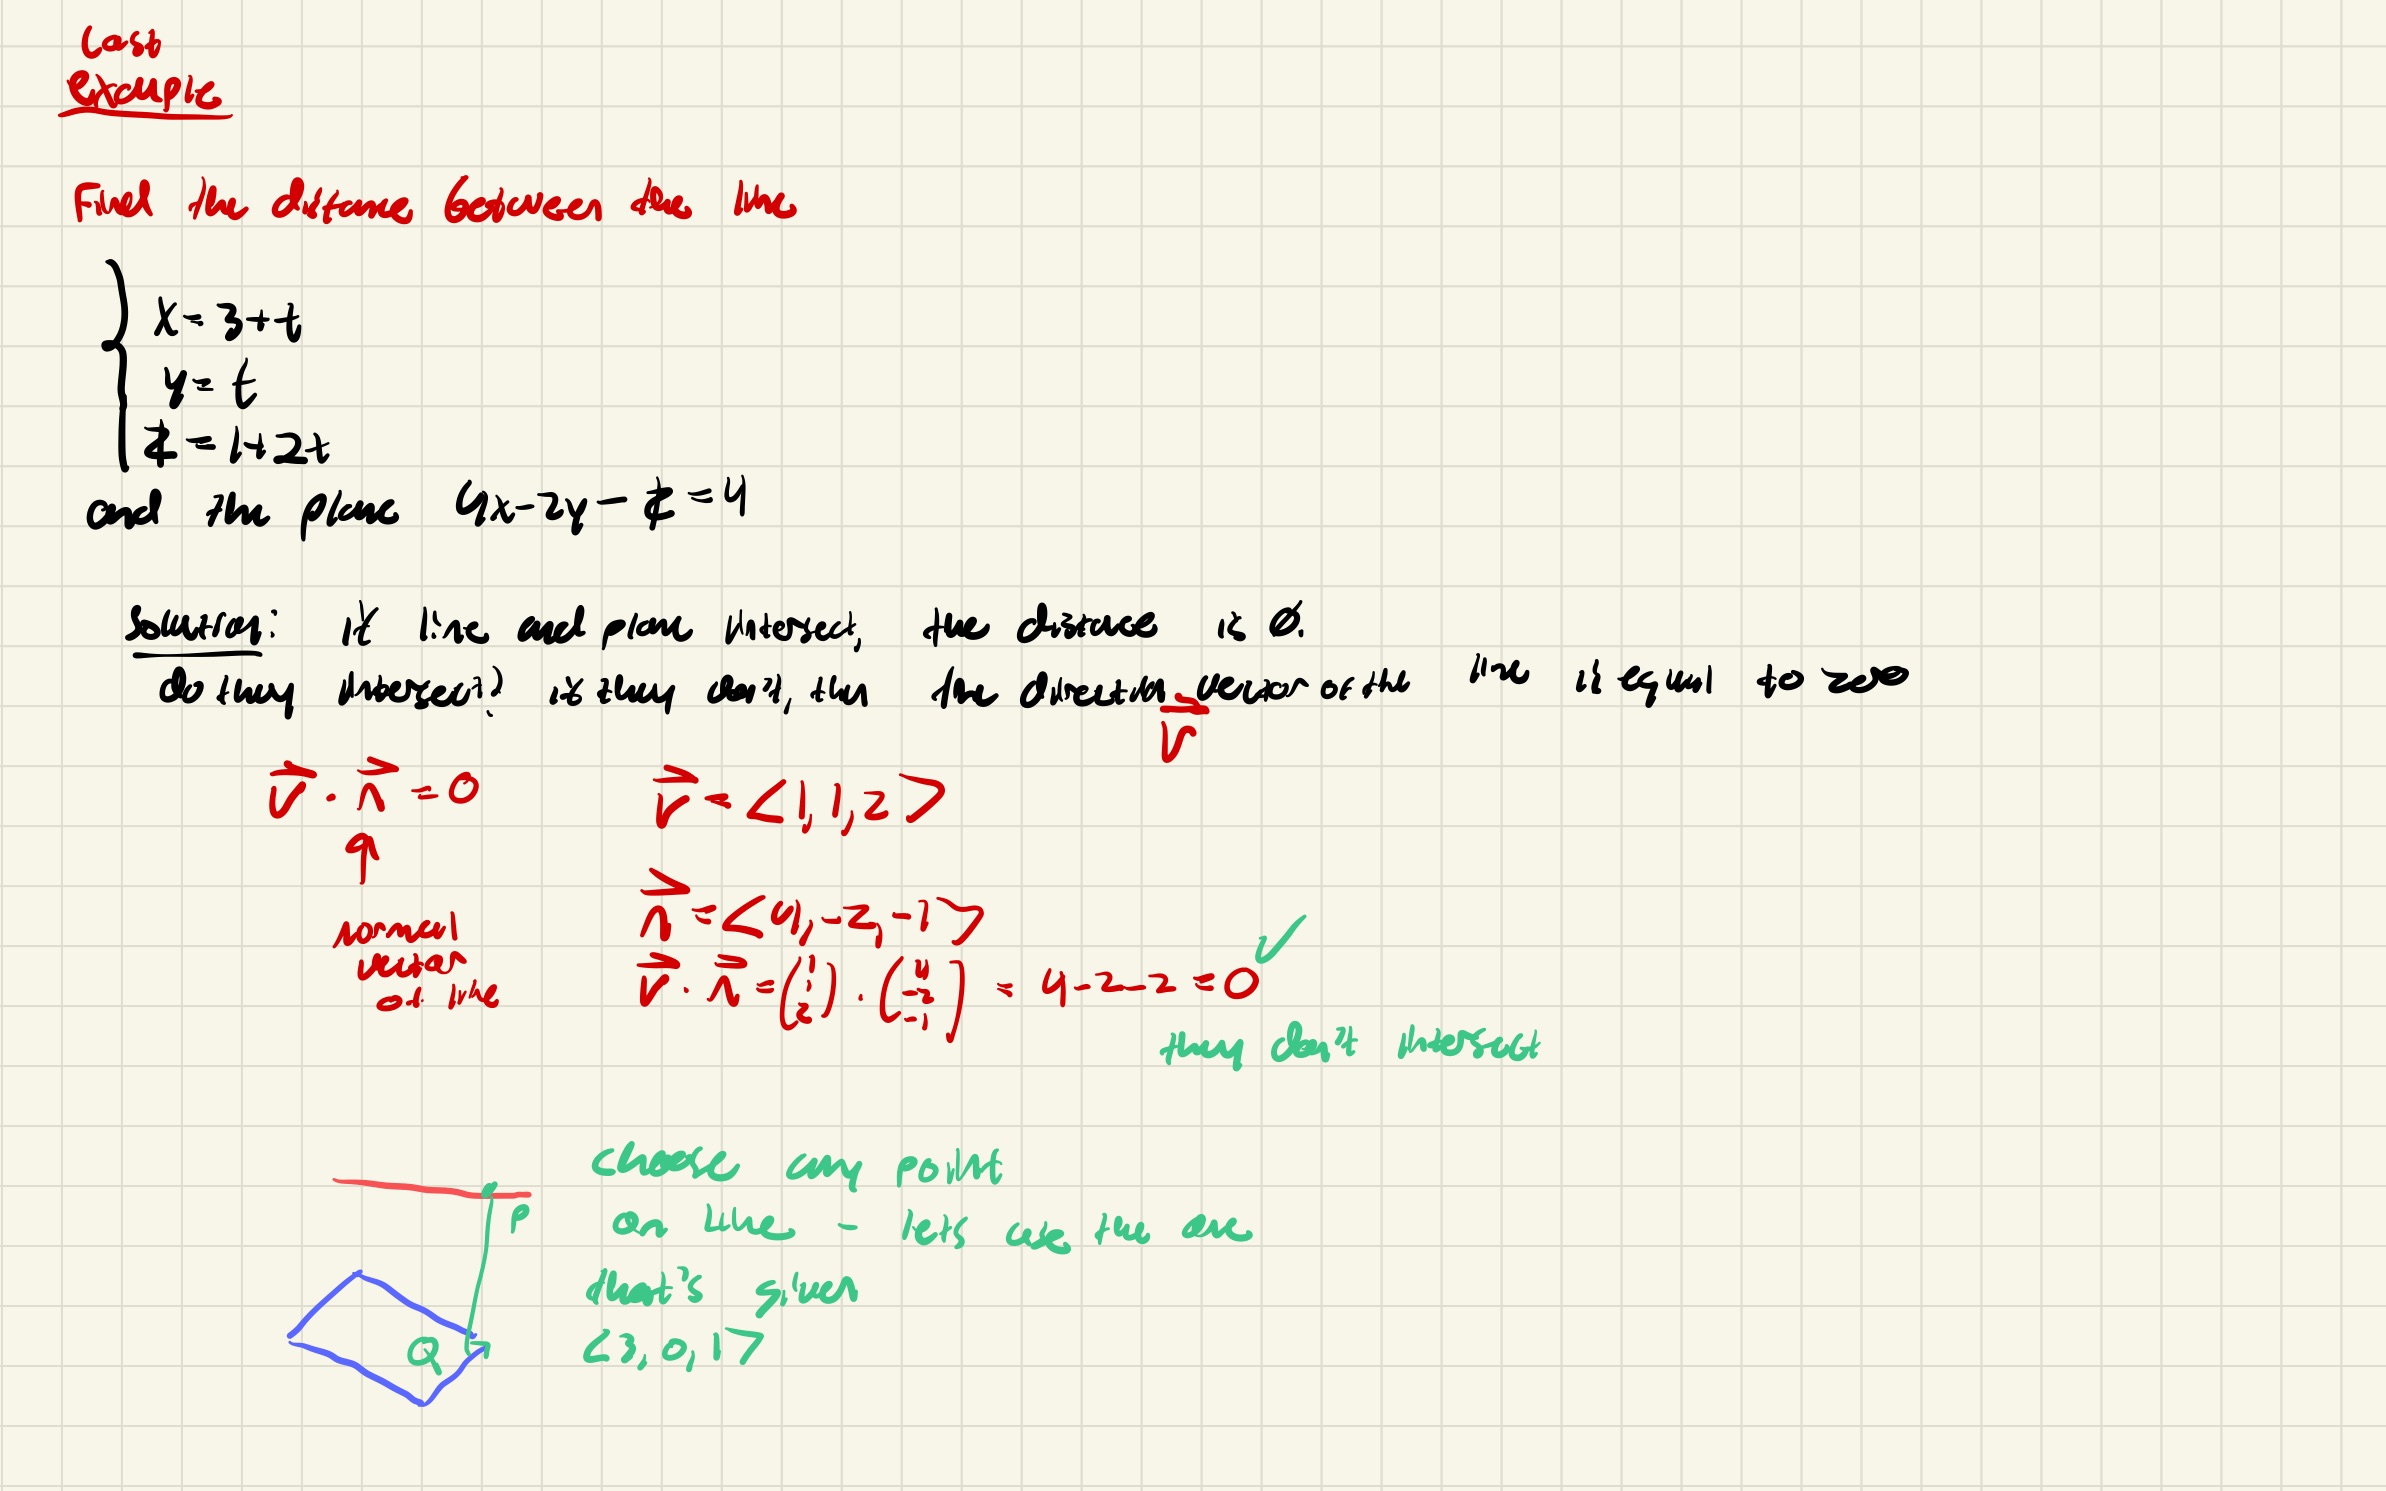 Last
Example
Find the distance between the line
x = 3+t
y = t
z = 1+2t
and the plane 4x-2y-z=4
Solution: if line and plane intersect, the distance is 0.
do they intersect? if they don't, then the direction vector of the line is equal to zero
v
v · n = 0
v = <1,1,2>
normal
vector
of line
n = <4,-2,-1>
v · n = (1 1 2) · (4 -2 -1) = 4-2-2=0 ✓
they don't intersect
choose any point
on line - lets use the one
that's given
<3,0,1>
P
Q